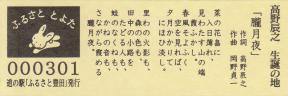 高野辰之 生誕の地
「朧月夜」
作詞 高野辰之
作曲 岡野貞一
菜の花畠に 入日薄れ
見わたす山の端 霞ふかし
春風そよふく 空を見れば
夕月かかりて におい淡し
里わの火影も 森の色も
田中の小路を たどる人も
蛙のなくねも かねの音も
さながら霞める 朧月夜
ふるさと とよた
000301
道の駅「ふるさと豊田」発行